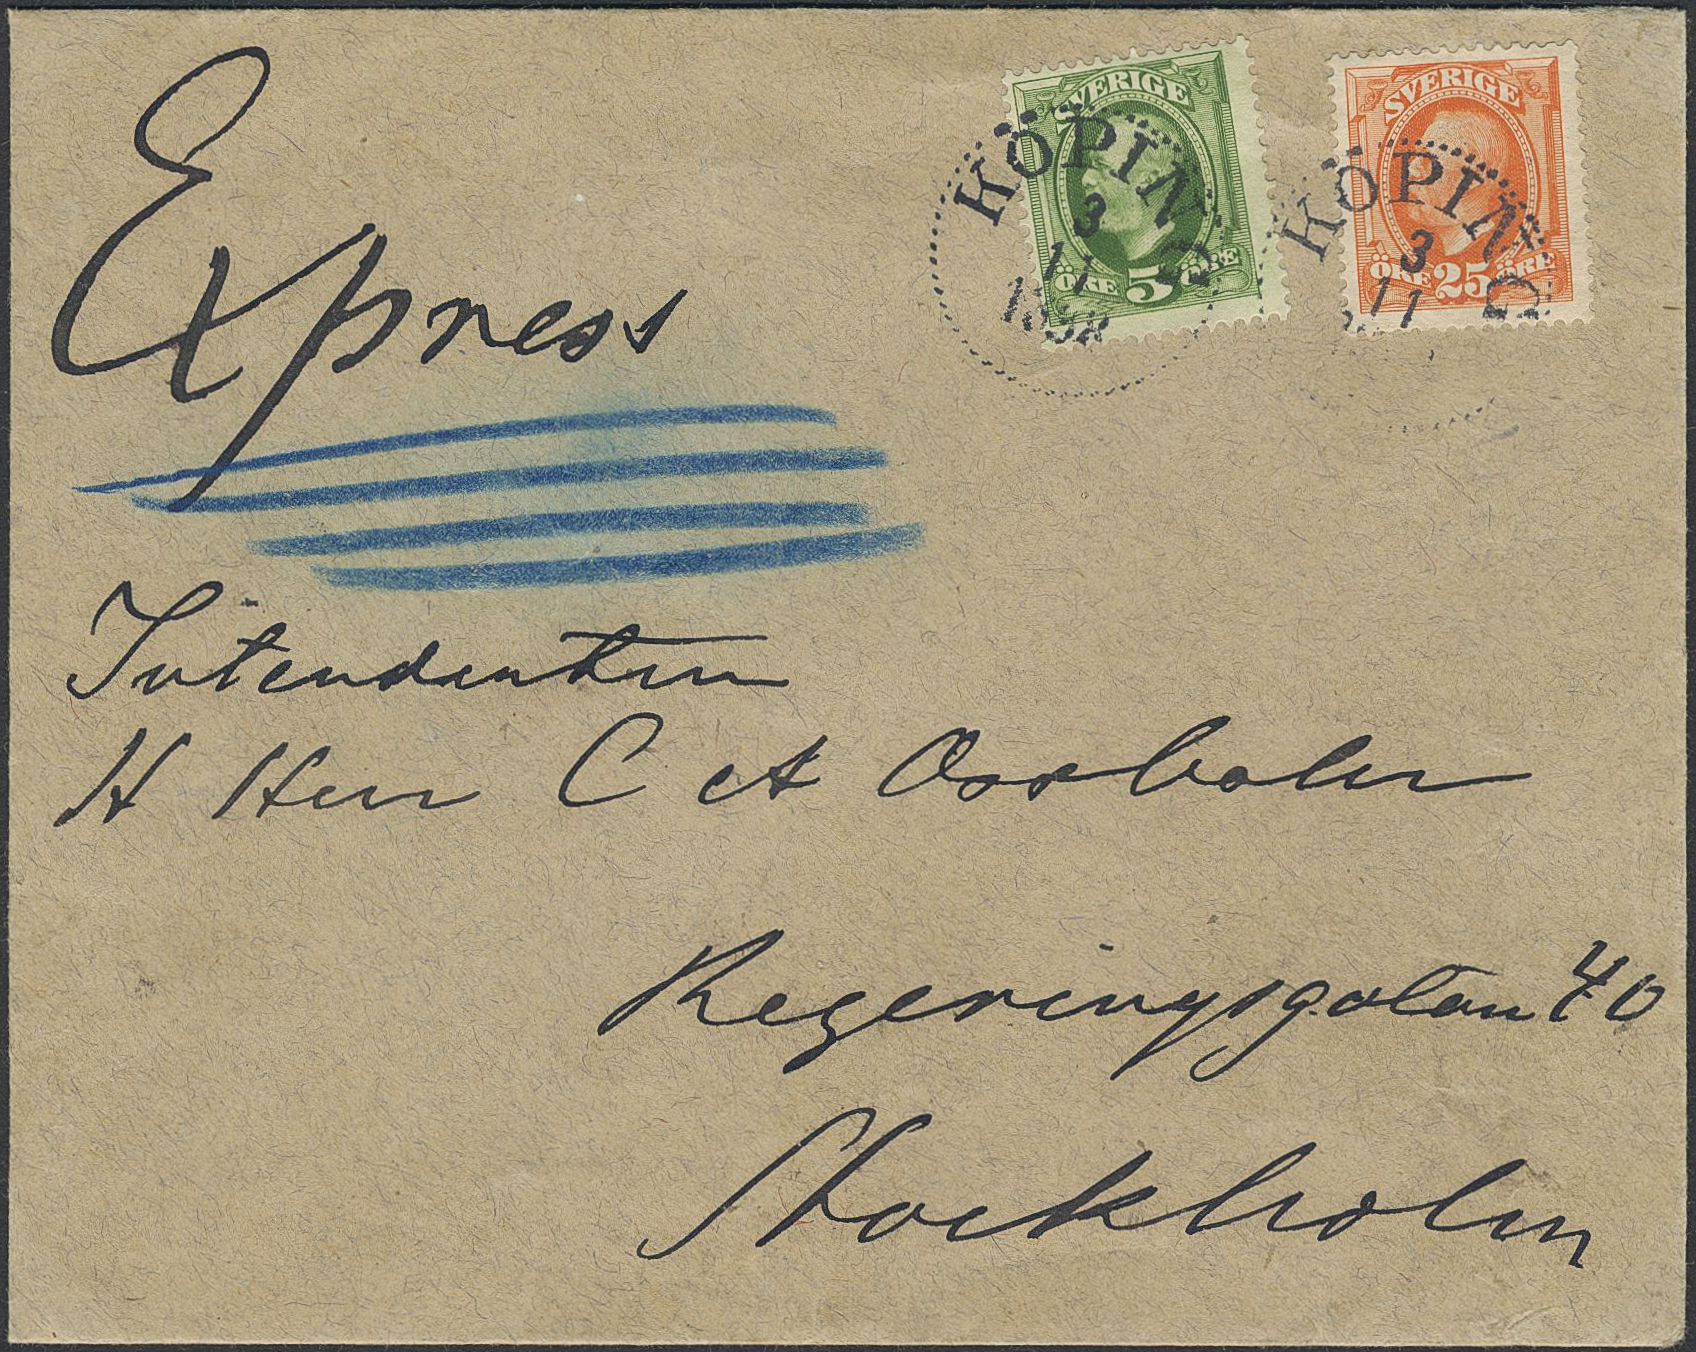 Express
SVERIGE
ÖRE 5 ÖRE
KÖPING
3
11
1898
SVERIGE
ÖRE 25 ÖRE
KÖPING
3
11
Intendenten
H Herr C A Ossbahr
Regeringsgatan 40
Stockholm